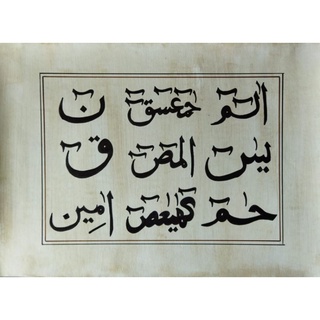 الم حمعسق ن
يس المص ق
حم كهيعص امين